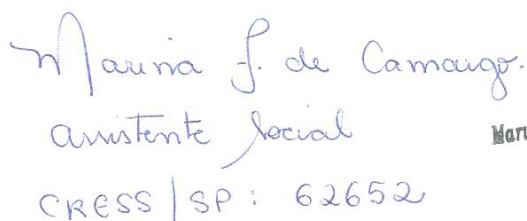 Marina F. de Camargo.
assistente social
CRESS/SP: 62652